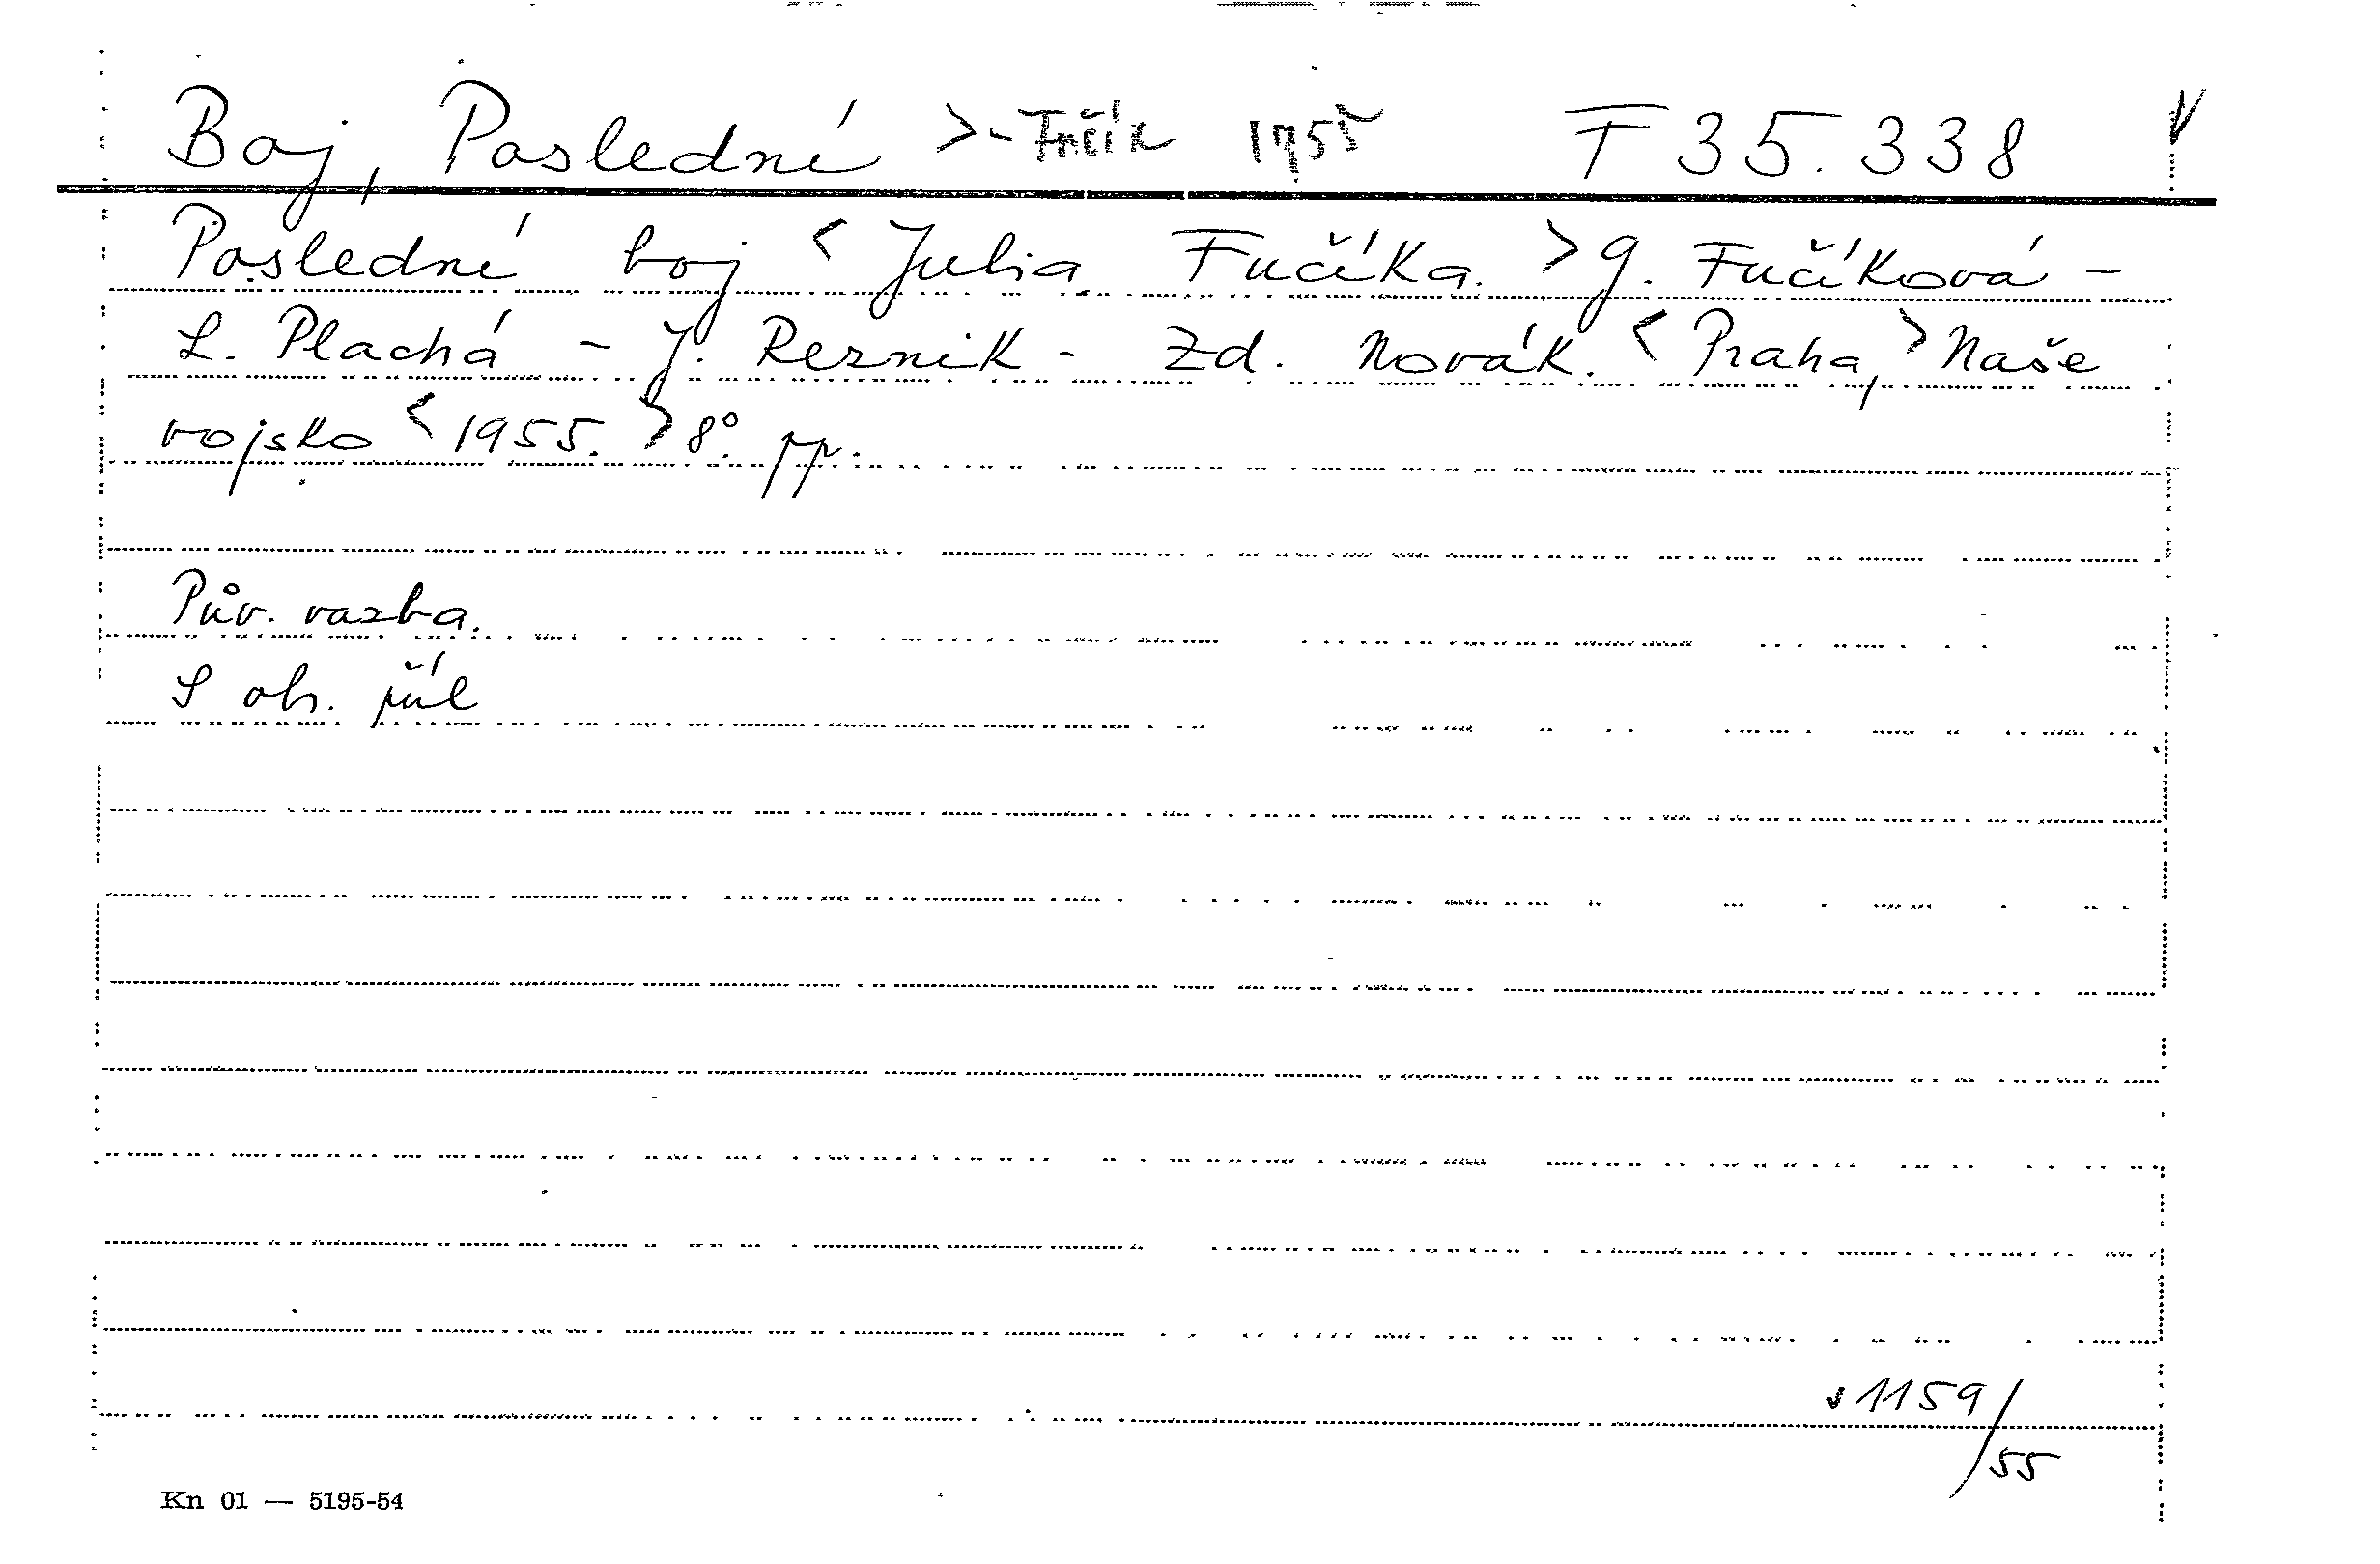 Boj, Poslední >- Fučík 1955 F 35.338
Poslední boj < Julia Fučíka. > G. Fučíková -
L. Plachá - J. Reznik - Zd. Novák. < Praha, > Naše
vojsko < 1955. > 8°. pp.
Pův. vazba.
S obr. příl
v 1159/
55
Kn 01 — 5195-54